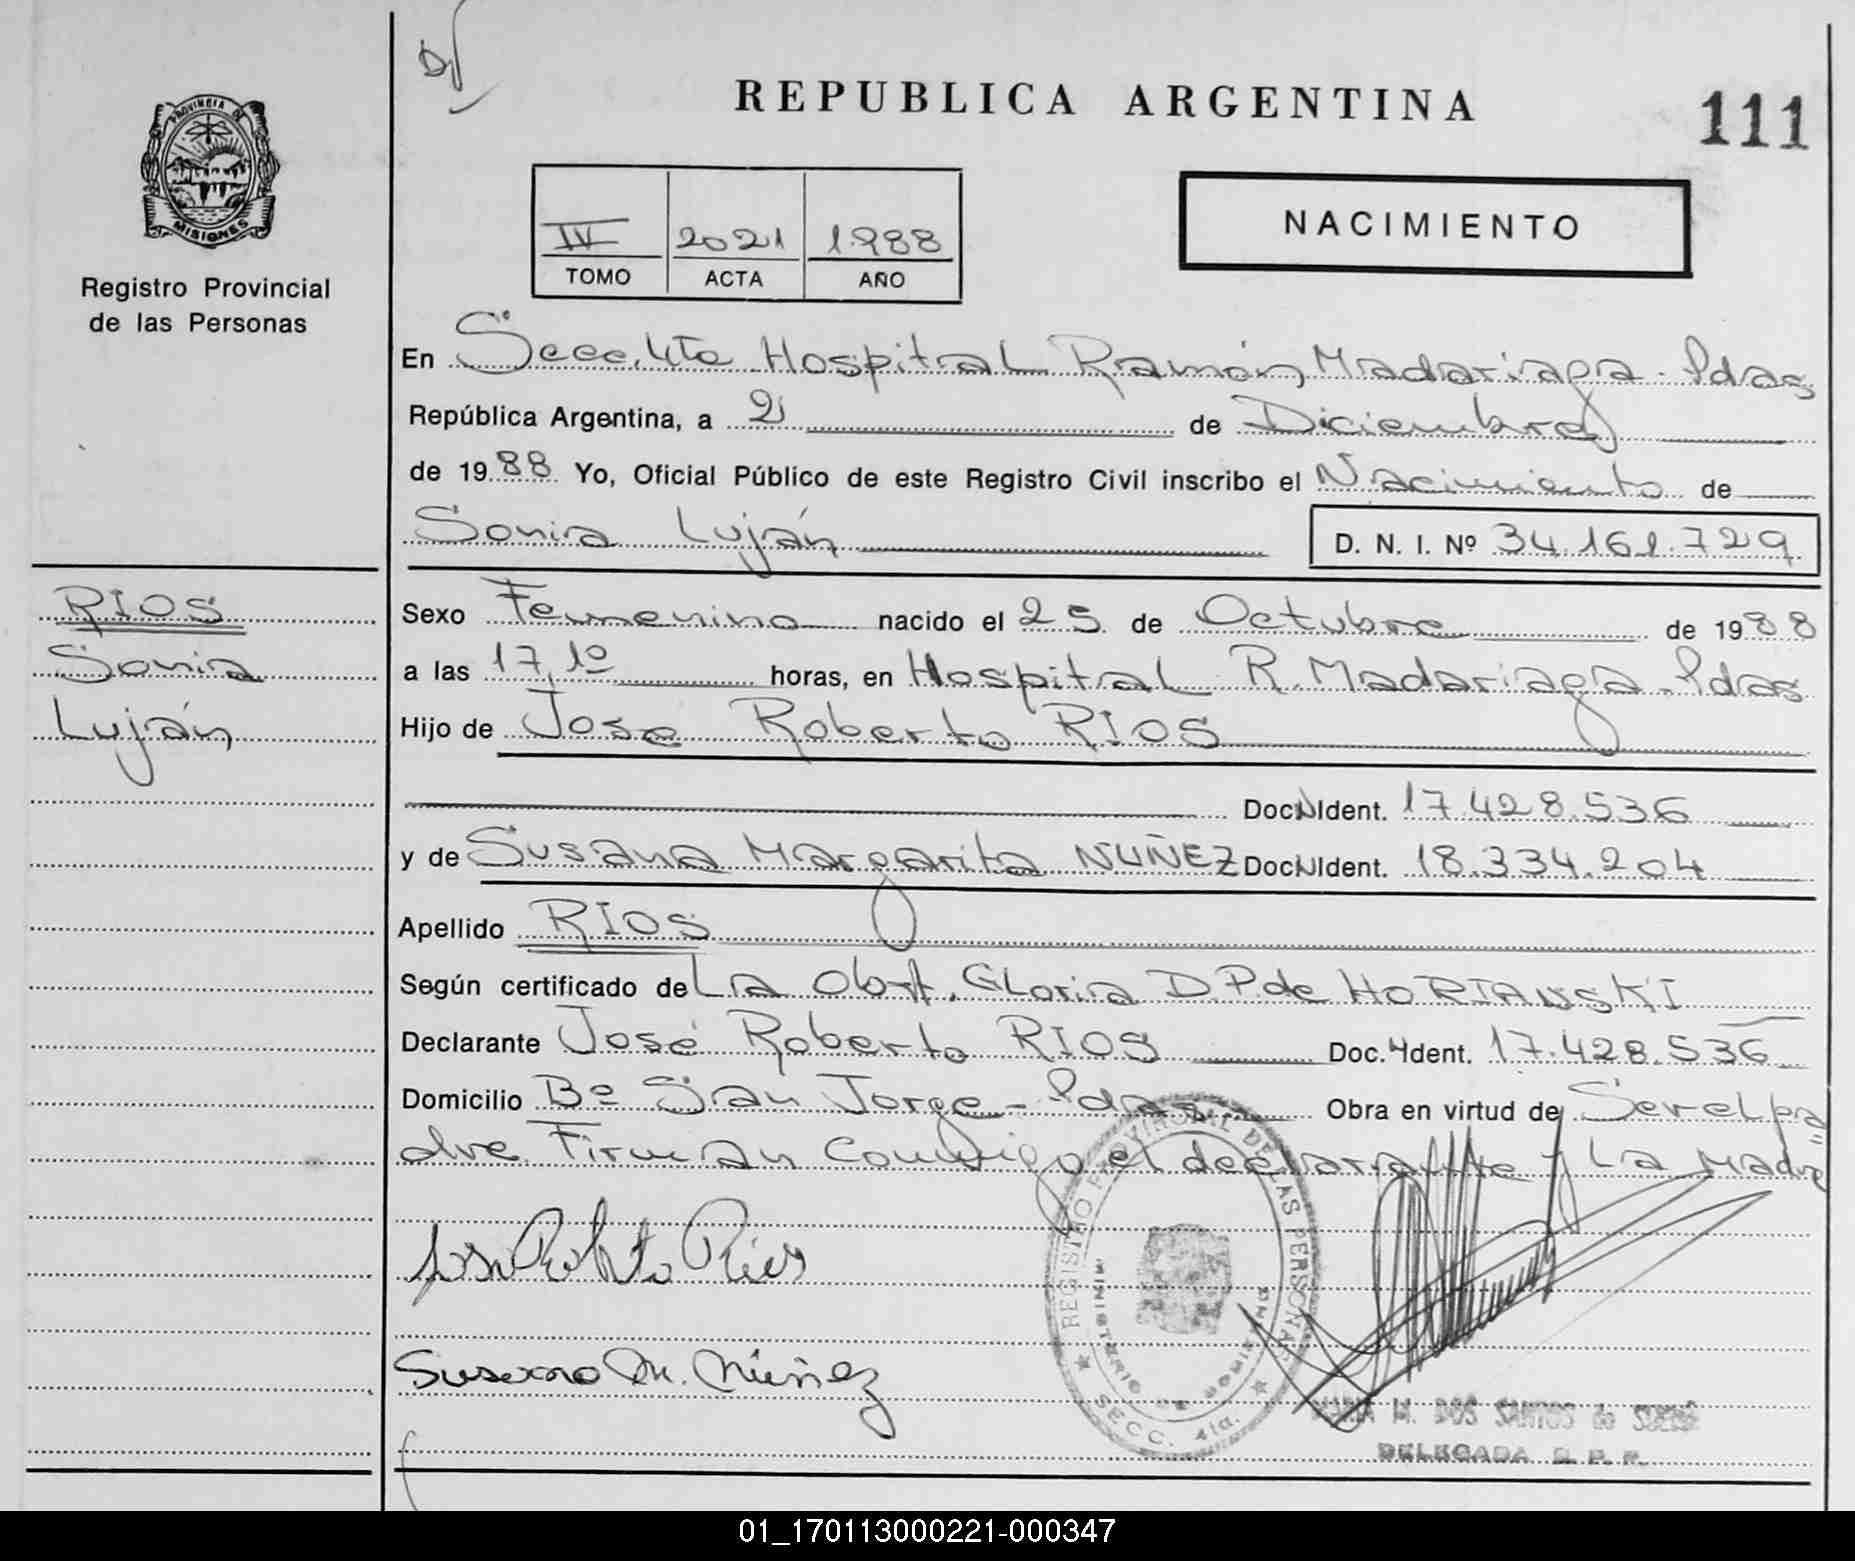 REPUBLICA ARGENTINA
111
PROVINCIA DE
MISIONES
Registro Provincial
de las Personas
IV 2021 1988
TOMO ACTA AÑO
NACIMIENTO
En Secc. 4ta Hospital Ramón Madariaga - Pdas
República Argentina, a 2 de Diciembre
de 1988 Yo, Oficial Público de este Registro Civil inscribo el Nacimiento de
Sonia Luján D. N. I. Nº 34.161.729
RIOS
Sonia
Luján
Sexo Femenino nacido el 25 de Octubre de 1988
a las 17,10 horas, en Hospital R. Madariaga - Pdas
Hijo de Jose Roberto RIOS
Doc.N.Ident. 17.428.536
y de Susana Margarita NUÑEZ Doc.N.Ident. 18.334.204
Apellido RIOS
Según certificado de La Obst. Gloria D.P. de HORIANSKI
Declarante José Roberto RIOS Doc. Ident. 17.428.536
Domicilio Bº San Jorge - Pdas Obra en virtud de Ser el pa
dre. Firman Conmigo el declarante y La Madre
Jose Roberto Rios
Susana M. Núñez
REGISTRO PROVINCIAL DE LAS PERSONAS
MINISTERIO DE GOBIERNO
SECC. 4ta.
MARIA M. DOS SANTOS de
DELEGADA R. P. P.
01_170113000221-000347